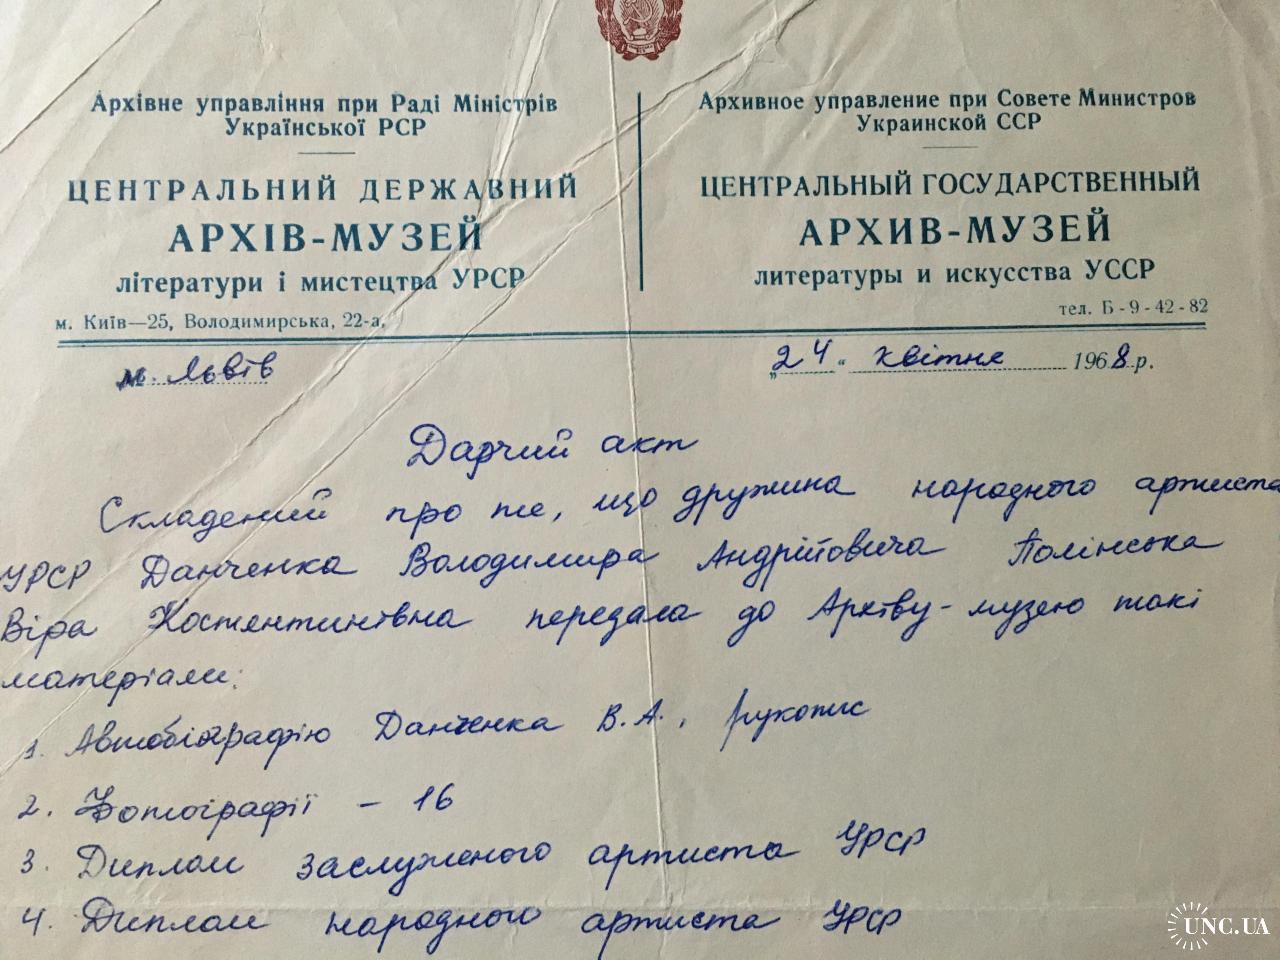 Архівне управління при Раді Міністрів
Української РСР
ЦЕНТРАЛЬНИЙ ДЕРЖАВНИЙ
АРХІВ-МУЗЕЙ
літератури і мистецтва УРСР
м. Київ—25, Володимирська, 22-а,
Архивное управление при Совете Министров
Украинской ССР
ЦЕНТРАЛЬНЫЙ ГОСУДАРСТВЕННЫЙ
АРХИВ-МУЗЕЙ
литературы и искусства УССР
тел. Б-9-42-82
м. Львів
„24" квітня 1968 р.
Дарчий акт
Складений про те, що дружина народного артиста
УРСР Данченка Володимира Андрійовича Полінська
Віра Костентинівна передала до Архіву-музею такі
матеріали:
1. Автобіографію Данченка В.А., рукопис
2. Фотографії – 16
3. Диплом заслуженого артиста УРСР
4. Диплом народного артиста УРСР
UNC.UA